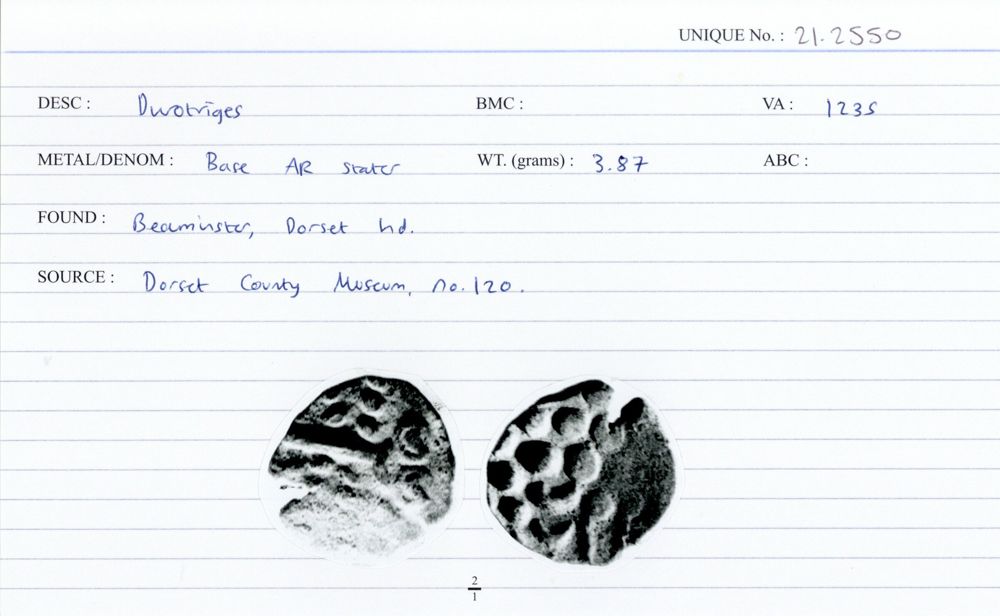 UNIQUE No. : 21.2550
DESC : Durotriges BMC : VA : 1235
METAL/DENOM : Base AR stater WT. (grams) : 3.87 ABC :
FOUND : Beaminster, Dorset hd.
SOURCE : Dorset County Museum, no. 120.
2
1